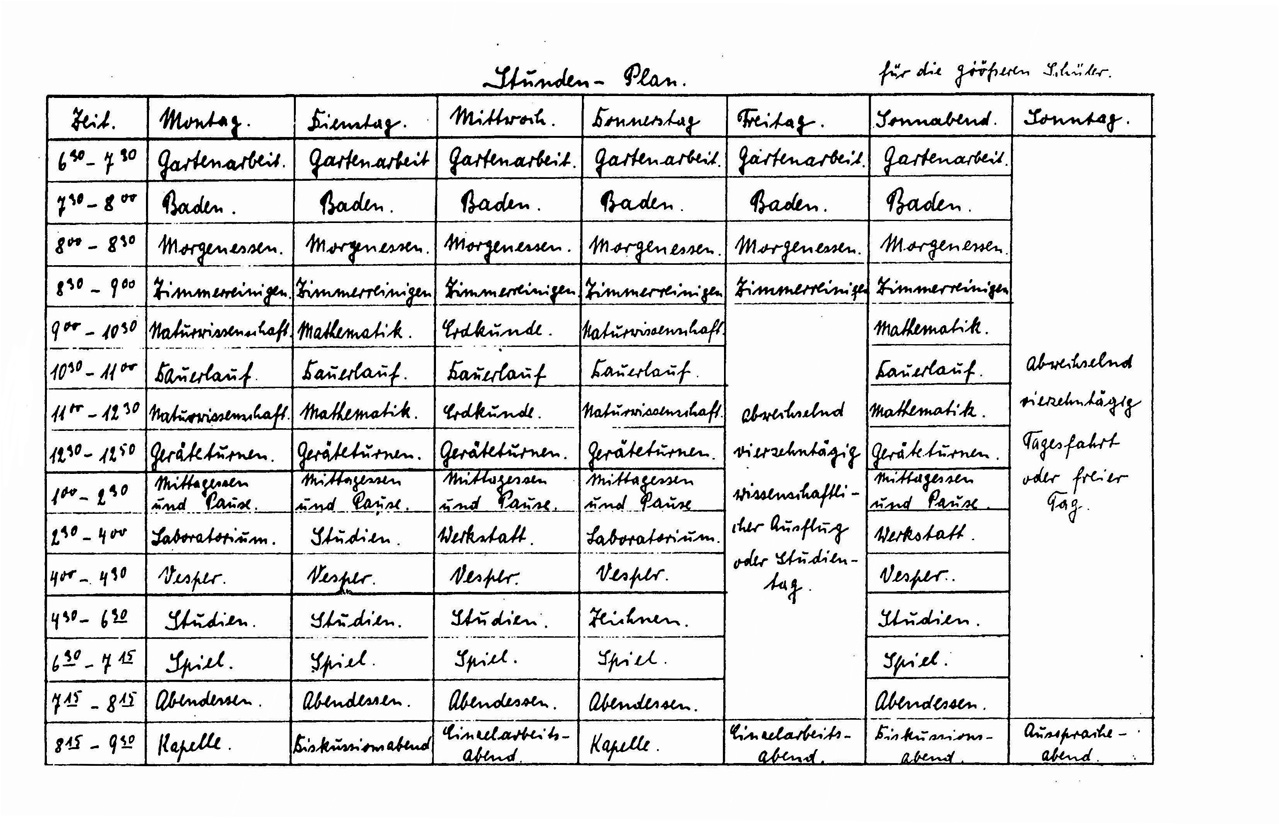 Stunden- Plan.
für die größeren Schüler.
Zeit. Montag. Dienstag. Mittwoch. Donnerstag Freitag. Sonnabend. Sonntag.
6 30 - 7 30 Gartenarbeit. Gartenarbeit Gartenarbeit. Gartenarbeit. Gartenarbeit. Gartenarbeit.
7 30 - 8 00 Baden. Baden. Baden. Baden. Baden. Baden.
8 00 - 8 30 Morgenessen. Morgenessen. Morgenessen. Morgenessen. Morgenessen. Morgenessen.
8 30 - 9 00 Zimmerreinigen. Zimmerreinigen Zimmerreinigen Zimmerreinigen Zimmerreinigen Zimmerreinigen
9 00 - 10 30 Naturwissenschaft. Mathematik. Erdkunde. Naturwissenschaft. Mathematik.
10 30 - 11 00 Dauerlauf. Dauerlauf. Dauerlauf Dauerlauf. Dauerlauf.
11 00 - 12 30 Naturwissenschaft. Mathematik. Erdkunde. Naturwissenschaft. Mathematik.
12 30 - 12 50 Geräteturnen. Geräteturnen. Geräteturnen. Geräteturnen. Geräteturnen.
1 00 - 2 30 Mittagessen und Pause. Mittagessen und Pause. Mittagessen und Pause. Mittagessen und Pause Mittagessen und Pause.
2 30 - 4 00 Laboratorium. Studien. Werkstatt. Laboratorium. Werkstatt.
4 00 - 4 30 Vesper. Vesper. Vesper. Vesper. Vesper.
4 30 - 6 30 Studien. Studien. Studien. Zeichnen. Studien.
6 30 - 7 15 Spiel. Spiel. Spiel. Spiel. Spiel.
7 15 - 8 15 Abendessen. Abendessen. Abendessen. Abendessen. Abendessen.
abwechselnd
vierzehntägig
wissenschaftli-
cher Ausflug
oder Studien-
tag.
Abwechselnd
vierzehntägig
Tagesfahrt
oder freier
Tag.
8 15 - 9 30 Kapelle. Diskussionsabend Einzelarbeits- abend. Kapelle. Einzelarbeits- abend. Diskussions- abend. Aussprache- abend.